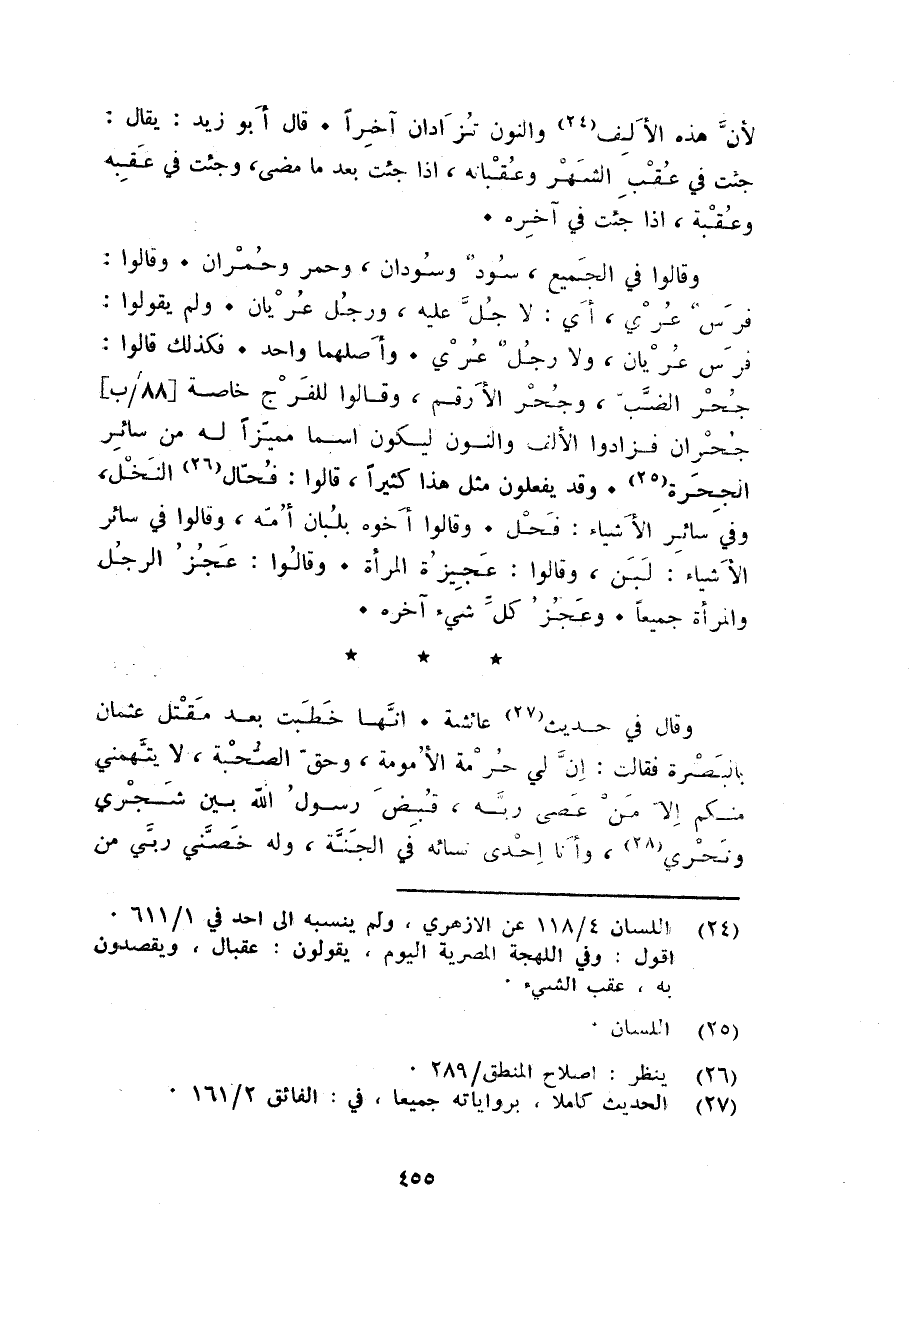 لأنَّ هذه الأَلِف(٢٤) والنون تُزَادان آخِراً . قال أَبو زيد : يقال :
جئت في عُقْبِ الشهْرِ وعُقْبانه ، اذا جئت بعد ما مضى، وجئت في عَقِبه
وعُقْبة ، اذا جئت في آخِره .
وقالوا في الجَميع ، سُودٌ وسُودان ، وحمر وحُمْران . وقالوا :
فرَسٌ عُرْي ، أَي : لا جُلَّ عليه ، ورجُل عُرْيان . ولم يقولوا :
فرَس عُرْيان ، ولا رجُلٌ عُرْي . وأَصلهما واحد . فكذلك قالوا :
جُحْر الضَّبّ ، وجُحْر الأَرقم ، وقالوا للفَرْج خاصة [٨٨/ب]
جُحْران فزادوا الألف والنون ليكون اسما مميّزاً له من سائِرِ
الجِحَرة(٢٥) . وقد يفعلون مثل هذا كثيراً ، قالوا : فُحّال(٢٦) النَخْل،
وفي سائِرِ الأَشياء : فَحْل . وقالوا أَخوه بلُبان أُمّه ، وقالوا في سائر
الأَشياء : لَبَن ، وقالوا : عَجِيزُة المرأة . وقالُوا : عَجُزُ الرجُل
والمرأة جميعاً . وعَجُزُ كلَّ شيء آخره .
★ ★ ★
وقال في حديث(٢٧) عائشة . انَّها خَطَبَت بعد مَقْتل عثمان
بالبَصْرة فقالت : إِنَّ لي حُرْمة الأُمومة ، وحقّ الصُّحْبة ، لا يتَّهمني
منكم إِلاّ مَنْ عَصى ربَّه ، قُبِضَ رسولُ الله بين سَحْري
ونَحْري(٢٨) ، وأَنا إِحْدى نسائه في الجَنَّة ، وله خَصَّني ربّي من
(٢٤) اللسان ١١٨/٤ عن الازهري ، ولم ينسبه الى احد في ٦١١/١ .
اقول : وفي اللهجة المصرية اليوم ، يقولون : عقبال ، ويقصدون
به ، عقب الشيء .
(٢٥) اللسان .
(٢٦) ينظر : اصلاح المنطق/٢٨٩ .
(٢٧) الحديث كاملا ، برواياته جميعا ، في : الفائق ١٦١/٢ .
٤٥٥